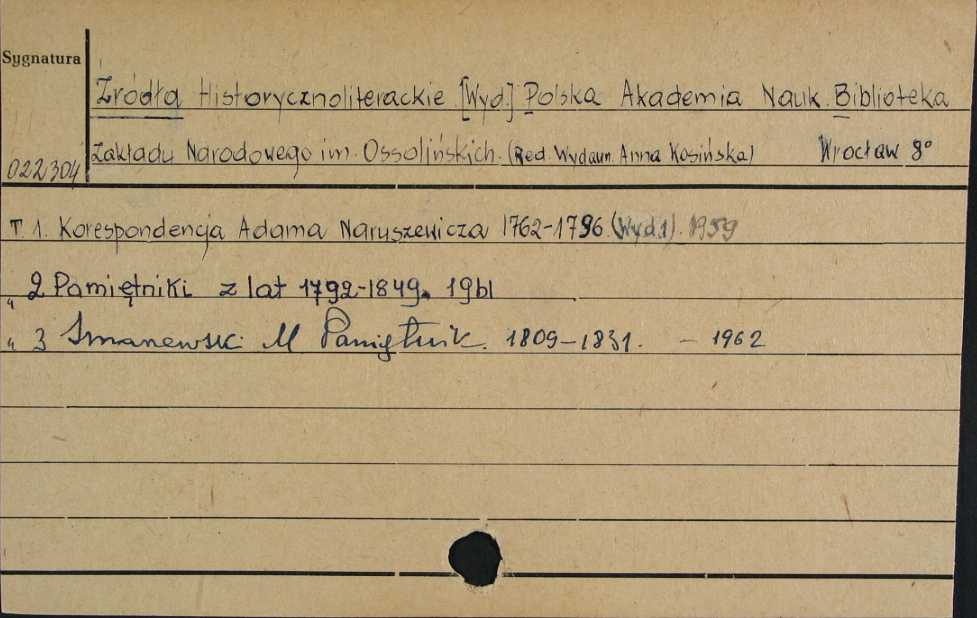 Sygnatura
Źródła Historycznoliterackie [Wyd.] Polska Akademia Nauk. Biblioteka
Zakładu Narodowego im. Ossolińskich. (Red. Wydawn. Anna Kosińska) Wrocław 8°
022304
T. 1. Korespondencja Adama Naruszewicza 1762-1796. (Wyd. 1). 1959
„ 2 Pamiętniki z lat 1792-1849. 1961
„ 3 M Pamiętnik. 1809-1831. - 1962